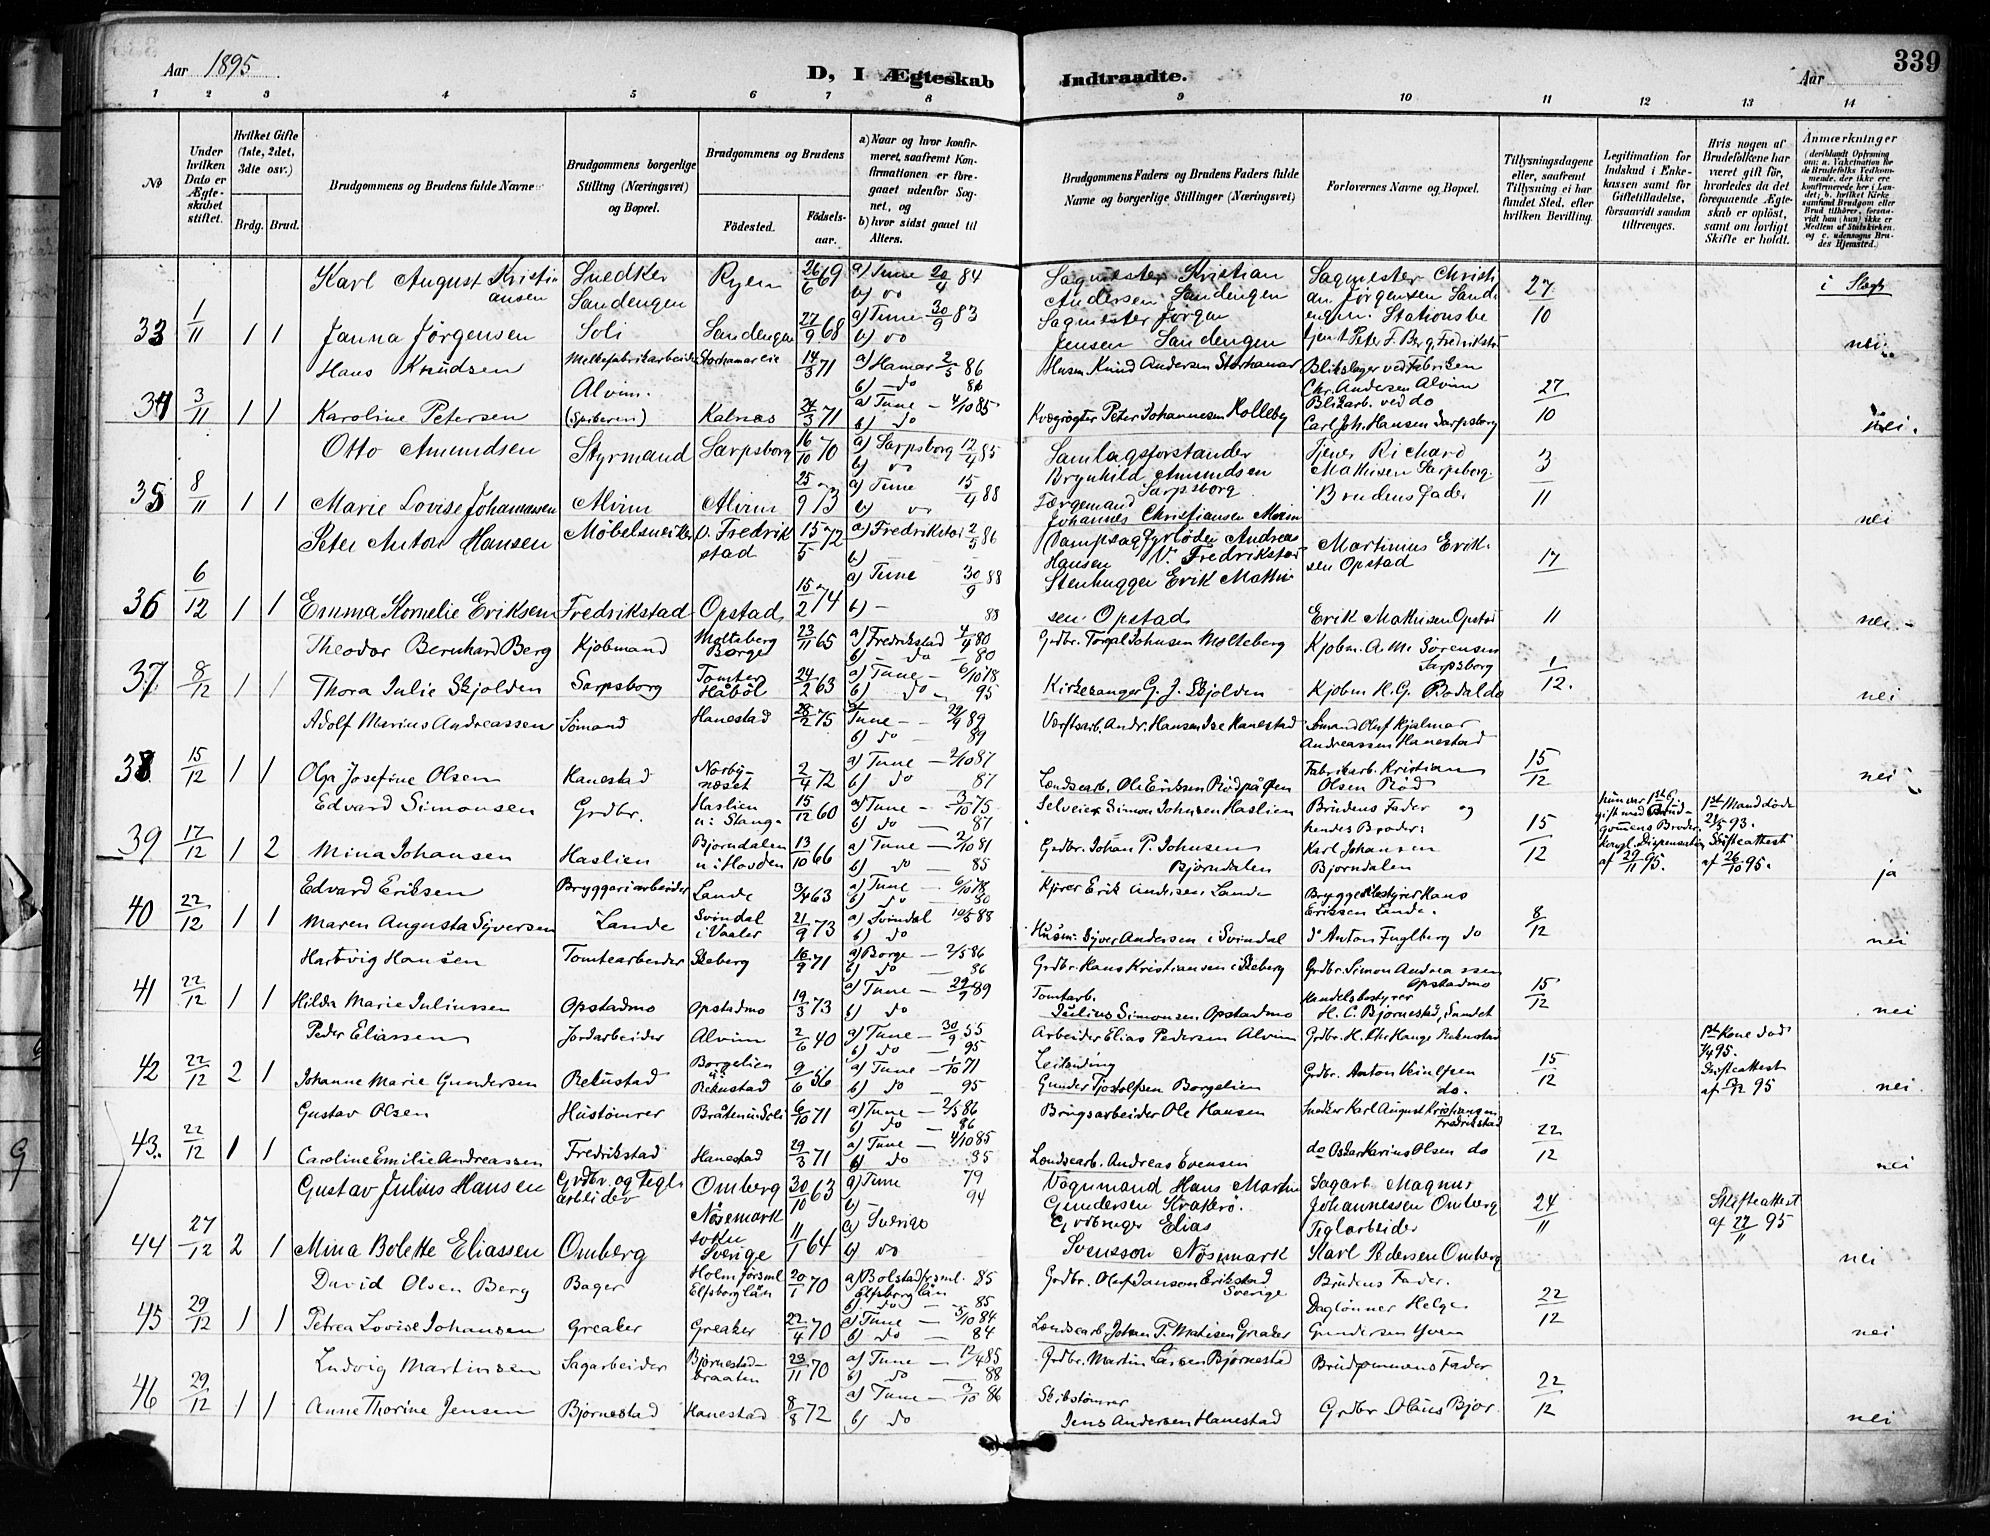 Aar 1895
D, I Ægteskab Indtraadte.
Aar
339
1 2 3 4 5 6 7 8 9 10 11 12 13 14
No
Under hvilken Dato er Ægteskabet stiftet.
Hvilket Gifte (1ste, 2det, 3die osv.)
Brdg. Brud.
Brudgommens og Brudens fulde Navne
Brudgommens borgerlige Stilling (Næringsvei) og Bopæl.
Brudgommens og Brudens
Fødested.
Fødselsaar.
a) Naar og hvor konfirmeret, saafremt Konfirmationen er foregaaet udenfor Sognet, og
b) hvor sidst gaaet til Alters.
Brudgommens Faders og Brudens Faders fulde Navne og borgerlige Stillinger (Næringsvei)
Forlovernes Navne og Bopæl.
Tillysningsdagene eller, saafremt Tillysning ei har fundet Sted, efter hvilken Bevilling.
Legitimation for Indskud i Enkekassen samt for Giftetilladelse, forsaavidt saadan tiltrænges.
Hvis nogen af Brudefolkene har været gift før, hvorledes da det foregaaende Ægteskab er opløst, samt om lovligt Skifte er holdt.
Anmærkninger
33 1/11 1 1
Karl August Kristiansen Snedker Sandengen Ryen 26/6 69 a) Tune 20/4 84 b) do
Sagmester Kristian Andersen Sandengen
Sagmester Christian Jørgensen Sandengen. 27/10 i Slegt
Janna Jørgensen Soli Sandengen 27/9 68 a) Tune 30/9 83 b) do
Sagmester Jørgen Jensen Sandengen
Peter F. Berg, Fredrikstad nei
34 3/11 1 1
Hans Knudsen Alvim. 14/3 71 a) Hamar 2/5 86 b) do 86
Husm. Knud Andersen Storhamar
Blikslager ved Fabriken Chr. Andersen Alvim 27/10
Karoline Petersen Kalnæs 71 a) Tune - 4/10 85 b) do
Peter Johannesen Kolleby
Blikarb. ved do Carl Joh. Hansen Sarpsborg nei.
35 8/11 1 1
Otto Amundsen Styrmand Sarpsborg 16/10 70 a) Sarpsborg 12/4 85 b) do
Samlagsforstander Brynhild Amundsen Sarpsborg
Tjener Richard Mathisen Sarpsborg. 3/11
Marie Lovise Johannessen Alvim Alvim 25/9 73 a) Tune 15/4 88 b) do
Færgemand Johannes Christiansen Alvim
Brudens Fader nei
36 6/12 1 1
Peter Anton Hansen Møbelsnedker V. Fredrikstad 15/5 72 a) Fredrikstad 2/5 86 b) -
Andreas Hansen V. Fredrikstad
Martinius Eriksen Opstad 17/11
Emma Kornelie Eriksen Fredrikstad Opstad 15/2 74 a) Tune 30/9 88 b) - 88
Stenhugger Erik Mathisen Opstad
Erik Mathisen Opstad nei
37 8/12 1 1
Theodor Bernhard Berg Kjøbmand Molteberg Borge 23/11 65 a) Fredrikstad 4/4 80 b) do - 80
Grdbr. Johnsen Molteberg
Kjøbm. A. M. Sørensen Sarpsborg 1/12.
Thora Julie Skjolden Sarpsborg Tomter Håbøl 24/2 63 a) Tune - 6/10 78 b) do - 95
Kirkesanger G. J. Skjolden
Kjøbm. H. G. nei
38 15/12 1 1
Adolf Marius Andreassen Sømand Hanestad 28/2 75 Tune - 89 b) do - 89
Værftsarb. Andr. Hansen Hanestad
Sømand Oluf Hjalmar Andreassen Hanestad 15/12
Olga Josefine Olsen Hanestad Norbynæset 2/4 72 a) Tune - 2/10 87 b) do 87
Landsearb. Ole Eriksen Rød
Fabrikarb. Kristian Olsen Rød nei
39 17/12 1 2
Edvard Simonsen Grdbr. Haslien u: Stang. 15/12 60 a) Tune - 3/10 75 b) do - 87
Selveier Simon Johnsen Haslien
Brudens Fader og hendes Broder. 15/12
hun var 1st G. gift med Brudgommens Broder. Kongl. Dispensation af 29/11 95.
1st Mand døde 21/5 93. Skifteattest af 26/10 95.
Mina Johansen Haslien Bjørndalen u: Hovden 13/10 66 a) Tune - 2/10 81 b) do - 85
Grdbr. Johan P. Johnsen Bjørndalen
Karl Johansen Bjørndalen ja
40 22/12 1 1
Edvard Eriksen Bryggeriarbeider Lande 3/4 63 a) Tune - 6/10 78 b) do - 80
Kjører Erik Andersen Lande
Bryggeribestyrer Hans Eriksen Lande. 8/12
Maren Augusta Syversen Lande Svindal i Vaaler 21/9 73 a) Svindal 10/5 88 b) do
Husm. Syver Andersen i Svindal
do Anton Fuglberg do nei
41 22/12 1 1
Hartvig Hansen Tomtearbeider Skeberg 16/9 71 a) Borge - 2/5 86 b) do - 86
Grdbr. Hans Kristiansen i Skeberg
Grdbr. Simon Andreassen Opstadmo 15/12
Hilda Marie Juliussen Opstadmo Opstadmo 19/3 73 a) Tune - 29/9 89 b) do
Tomtarb. Julius Simonsen Opstadmo
Handelsbestyrer H. C. Bjørnestad, Sundet nei
42 22/12 2 1
Peder Eliassen Jordarbeider Alvim 2/6 40 a) Tune - 30/9 55 b) do - 95
Arbeider Elias Pedersen Alvim
Grdbr. H. Chr. Hauge Rekustad 15/12
1st Kone død 1/4 95. Skifteattest af 95
Johanne Marie Gundersen Rekustad Borgelien u: Rekustad 9/6 56 a) Tune - 1/10 71 b) do - 95
Leilending Gunder Tjostolfsen Borgelien
Grdbr. Anton do. nei.
43. 22/12 1 1
Gustav Olsen Hustømrer Bråten u: Soli 6/10 71 a) Tune - 2/5 86 b) do - 86
Brugsarbeider Ole Hansen
Snedker Karl August Kristiansen Fredrikstad 22/12
Caroline Emilie Andreassen Fredrikstad Hanestad 29/3 71 a) Tune - 4/10 85 b) do 85
Landsearb. Andreas Evensen
do Oskar Marius Olsen do nei
44 27/12 2 1
Gustav Julius Hansen Grdbr. og Teglarbeider Omberg 30/10 63 a) Tune 79 b) - 94
Vognmand Hans Martin Gundersen Kråkerø.
Sagarb. Magnus Johannessen Omberg 24/11
Skifteattest af 22/11 95
Mina Bolette Eliassen Omberg Nøsemark sokn Sverige 11/1 64 a) Sverige b) do
Grdbruger Elias Svensson Nøsemark
Teglarbeider Karl Pedersen Omberg nei
45 29/12 1 1
David Olsen Berg Bager Holm försml. Elfsborg län 20/1 70 a) Bolstad frsml. Elfsborg län 85 b) do - 85
Grdbr. Oluf Janson Erikstad Sverige
Brudens Fader. 22/12
Petrea Lovise Johansen Greaker Greaker 22/4 70 a) Tune - 5/10 84 b) do - 84
Landsearb. Johan P. Mathisen Greaker
Daglønner Helge Gundersen Yven nei
46 29/12 1 1
Ludvig Martinsen Sagarbeider Bjørnestadbraaten 23/11 70 a) Tune - 12/4 85 b) do - 88
Grdbr. Martin Larsen Bjørnestad
Brudgommens Fader 22/12
Anne Thorine Jensen Bjørnestad Hanestad 8/8 72 a) Tune - 3/10 86 b) do
Skibstømrer Jens Andersen Hanestad
Grdbr. Olaus Bjør. nei